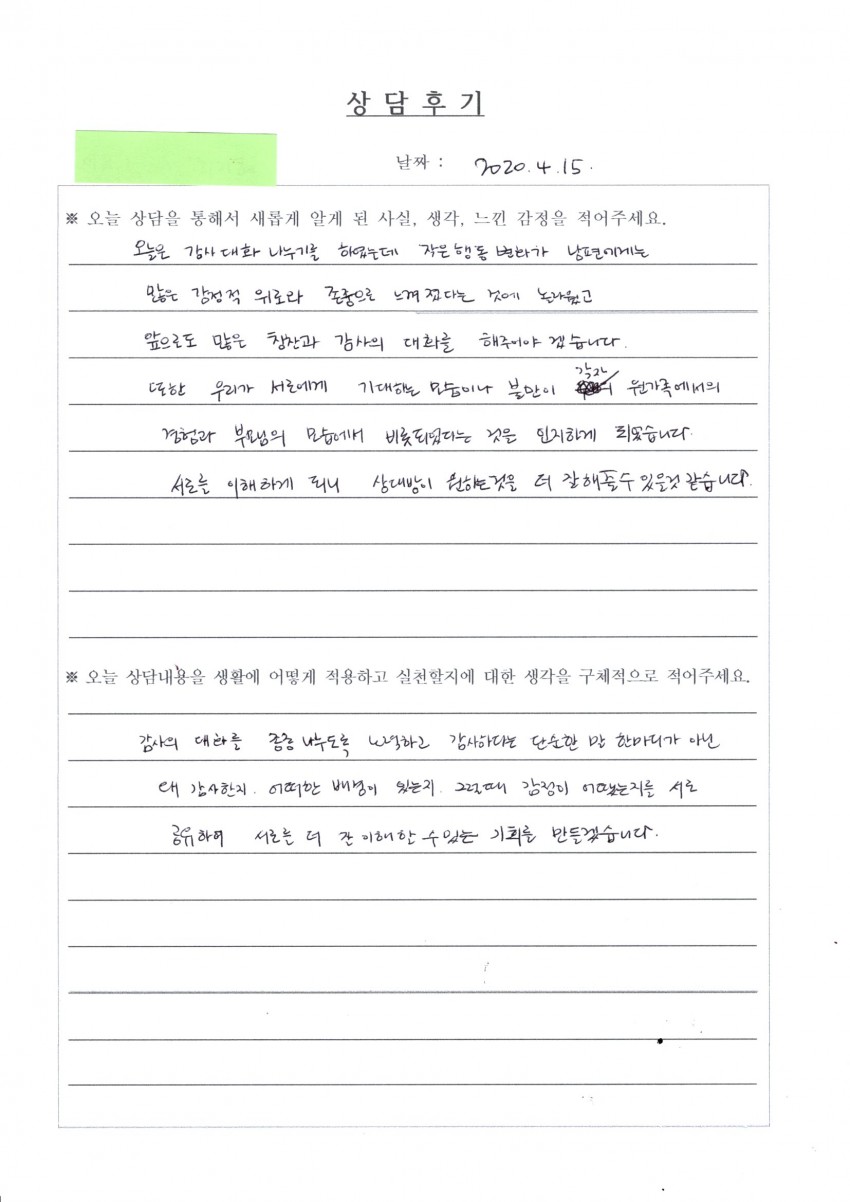 상 담 후 기
날짜 : 2020. 4. 15.
※ 오늘 상담을 통해서 새롭게 알게 된 사실, 생각, 느낀 감정을 적어주세요.
오늘은 감사 대화 나누기를 하였는데 작은 행동 변화가 남편에게는
많은 감정적 위로와 존중으로 느껴졌다는 것에 놀라웠고
앞으로도 많은 칭찬과 감사의 대화를 해주어야 겠습니다.
또한 우리가 서로에게 기대하는 모습이나 불만이 각자 원가족에서의
경험과 부모님의 모습에서 비롯되었다는 것을 인지하게 되었습니다.
서로를 이해하게 되니 상대방이 원하는것을 더 잘해줄수 있을것 같습니다.
※ 오늘 상담내용을 생활에 어떻게 적용하고 실천할지에 대한 생각을 구체적으로 적어주세요.
감사의 대화를 종종 나누도록 노력하고 감사하다는 단순한 말 한마디가 아닌
왜 감사한지. 어떠한 배경이 있는지. 그럴때 감정이 어땠는지를 서로
공유하여 서로를 더 잘 이해할 수 있는 기회를 만들겠습니다.